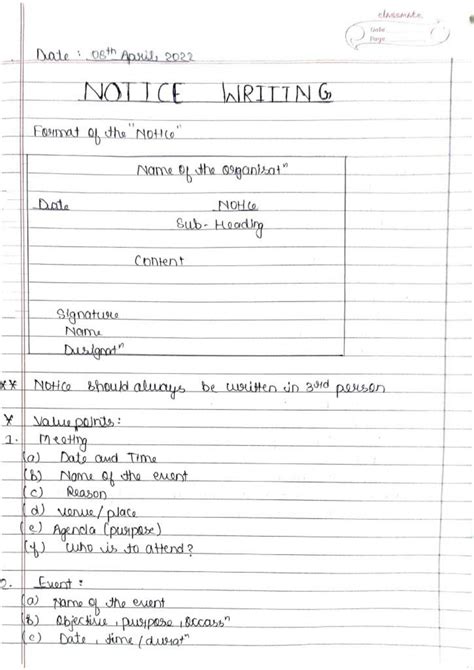 classmate
Date
Page
Date : 08th April, 2022
NOTICE WRITING
Format of the "Notice"
Name of the organisatn
Date Notice
Sub-Heading
Content
Signature
Name
Designatn
** Notice should always be written in 3rd person
* Value points :
1. Meeting
(a) Date and Time
(b) Name of the event
(c) Reason
(d) venue / place
(e) Agenda (purpose)
(f) who is to attend?
2. Event :
(a) Name of the event
(b) Objective, purpose, occasn
(c) Date, time / duratn